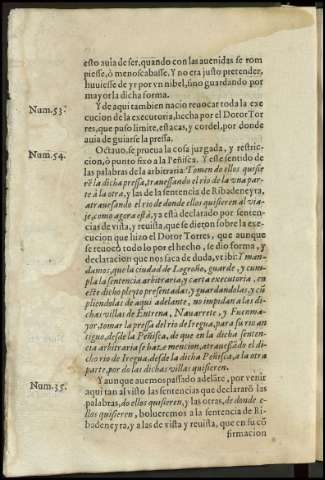 esto auia de ser, quando con las auenidas se rom
piesse, ò menoscabasse. Y no era justo pretender,
huuiesse de yr por vn nibel, sino guardando por
mayor la dicha forma.
Num.53. Y de aqui tambien nacio reuocar toda la exe
cucion de la executoria, hecha por el Dotor Tor
res, que puso limite, estacas, y cordel, por donde
auia de guiarse la pressa.
Num.54. Octauo, se prueua la cosa juzgada, y restric-
cion, ò punto fixo a la Peñisca. Y este sentido de
las palabras de la arbitraria: Tomen do ellos quisie
rē la dicha pressa, trauessando el rio de la vna par-
te à la otra, y las de la sentencia de Ribadeneyra,
atrauesando el rio de donde ellos quisieren al via-
je, como agora està, ya està declarado por senten-
cias de vista, y reuista, que se dieron sobre la exe-
cucion que hizo el Dotor Torres, que aunque
se reuocò todo lo por el hecho, se dio forma, y
declaracion que nos saca de duda, vt ibi: Y man-
damos, que la ciudad de Logroño, guarde, y cum-
pla la sentencia arbitraria, y carta executoria, en
este dicho pleyto presentadas, y guardandolas, y cū
pliendolas de aqui adelante, no impidan a las di-
chas villas de Entrena, Nauarrete, y Fuenma-
yor, tomar la pressa del rio de Iregua, para su riu an
tiguo, desde la Peñisca, de que en la dicha senten-
cia arbitraria se haze mencion, atrauessādo el di-
cho rio de Iregua, desde la dicha Peñisca, a la otra
parte, por do las dichas villas quisieren.
Num.35. Y aunque auemos passado adelāte, por venir
aqui tan al visto las sentencias que declararō las
palabras, do ellos quisieren, y las otras, de donde e-
llos quisieren, bolueremos a la sentencia de Ri-
badeneyra, y a las de vista y reuista, que en su cō
firmacion